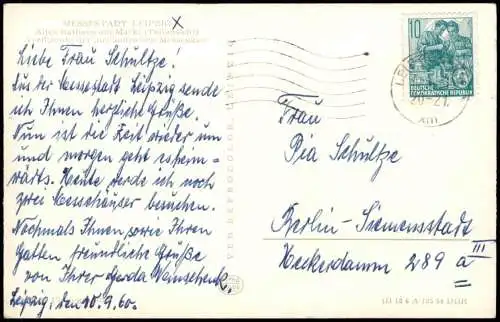 MESSESTADT LEIPZIG
Altes Rathaus am Markt (Teilansicht)
Liebe Frau Schultze!
Aus der Messestadt Leipzig sende
ich Ihnen herzliche Grüße.
Nun ist die Zeit wieder um
und morgen geht es heim-
wärts. Heute werde ich noch
zwei Messehäuser besuchen.
Nochmals Ihnen sowie Ihren
Gatten freundliche Grüße
von Ihrer Gerda Weinschenk.
Leipzig, den 10.9.60.
10
DEUTSCHE
DEMOKRATISCHE REPUBLIK
20-21
Frau
Pia Schultze
Berlin-Siemensstadt
Heckerdamm 289 a III